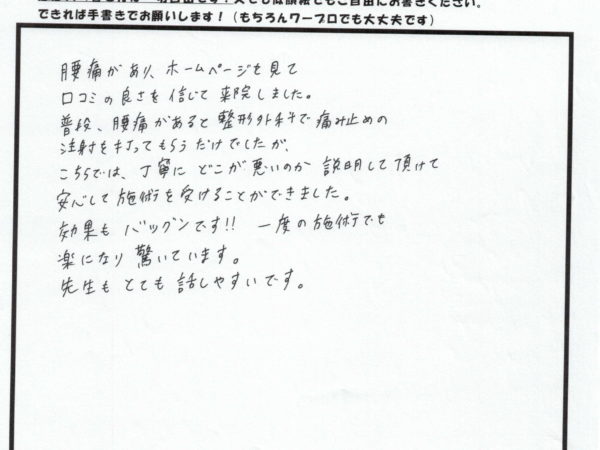 できれば手書きでお願いします！（もちろんワープロでも大丈夫です）
腰痛があり、ホームページを見て
口コミの良さを信じて来院しました。
普段、腰痛があると整形外科で痛み止めの
注射を打ってもらうだけでしたが、
こちらでは、丁寧にどこが悪いのか説明して頂けて
安心して施術を受けることができました。
効果もバツグンです!! 一度の施術でも
楽になり驚いています。
先生もとても話しやすいです。